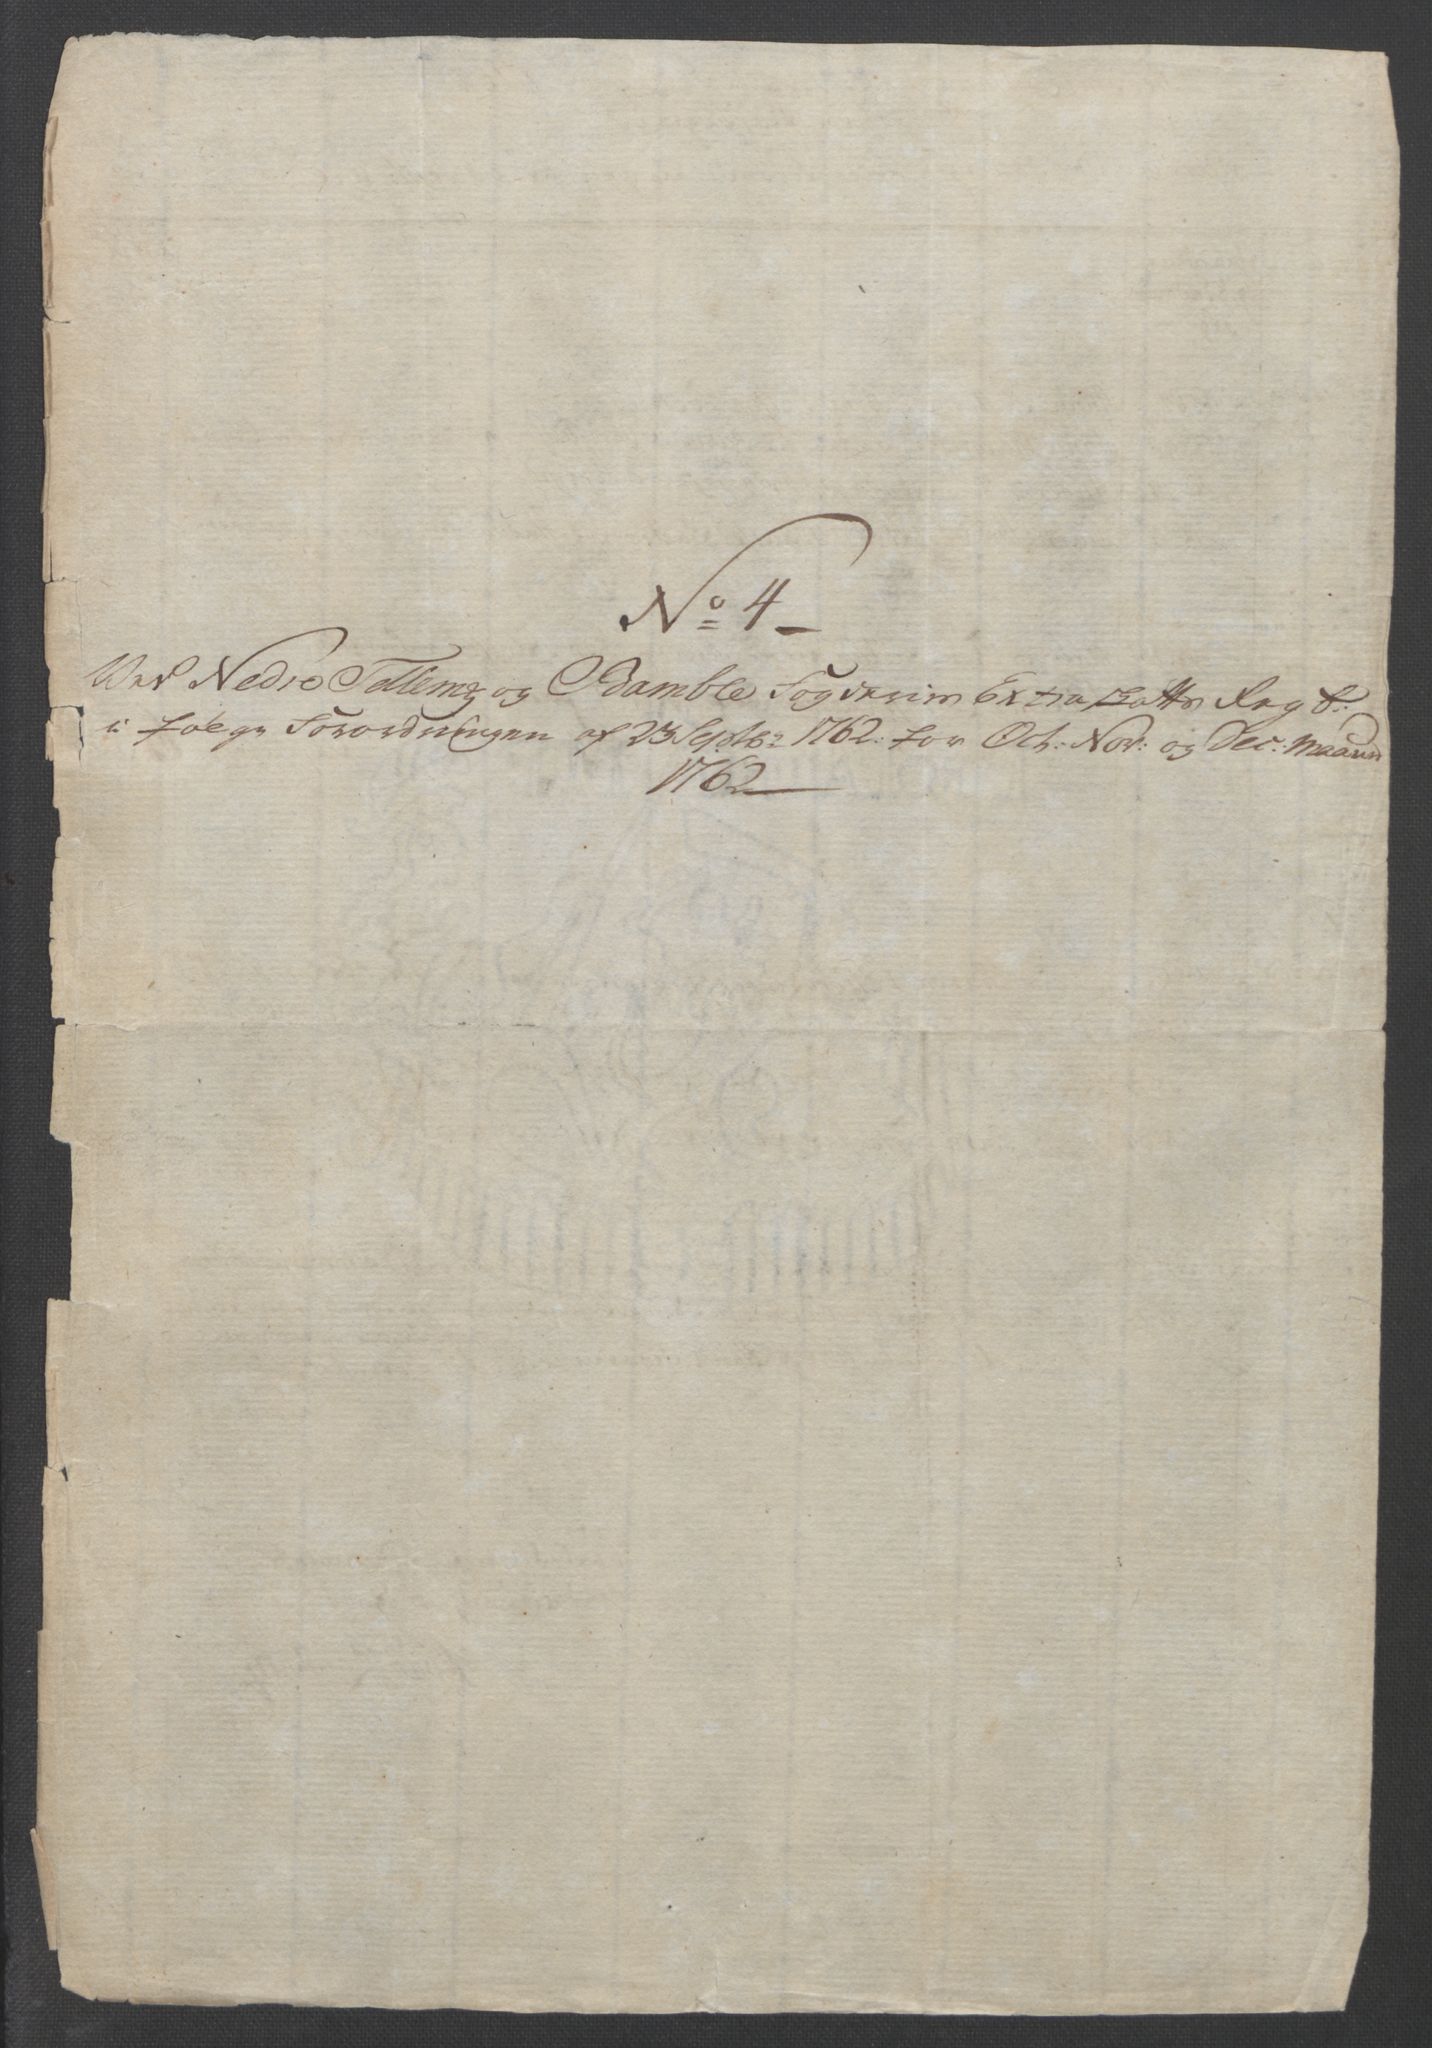 No 4
Ved Nedre Tellem: og Bamble Fogderies Extra skatts Regb:
i følge Forordningen af 23 Septbr 1762: for Oct: Nov: og Dec: Maaned
1762